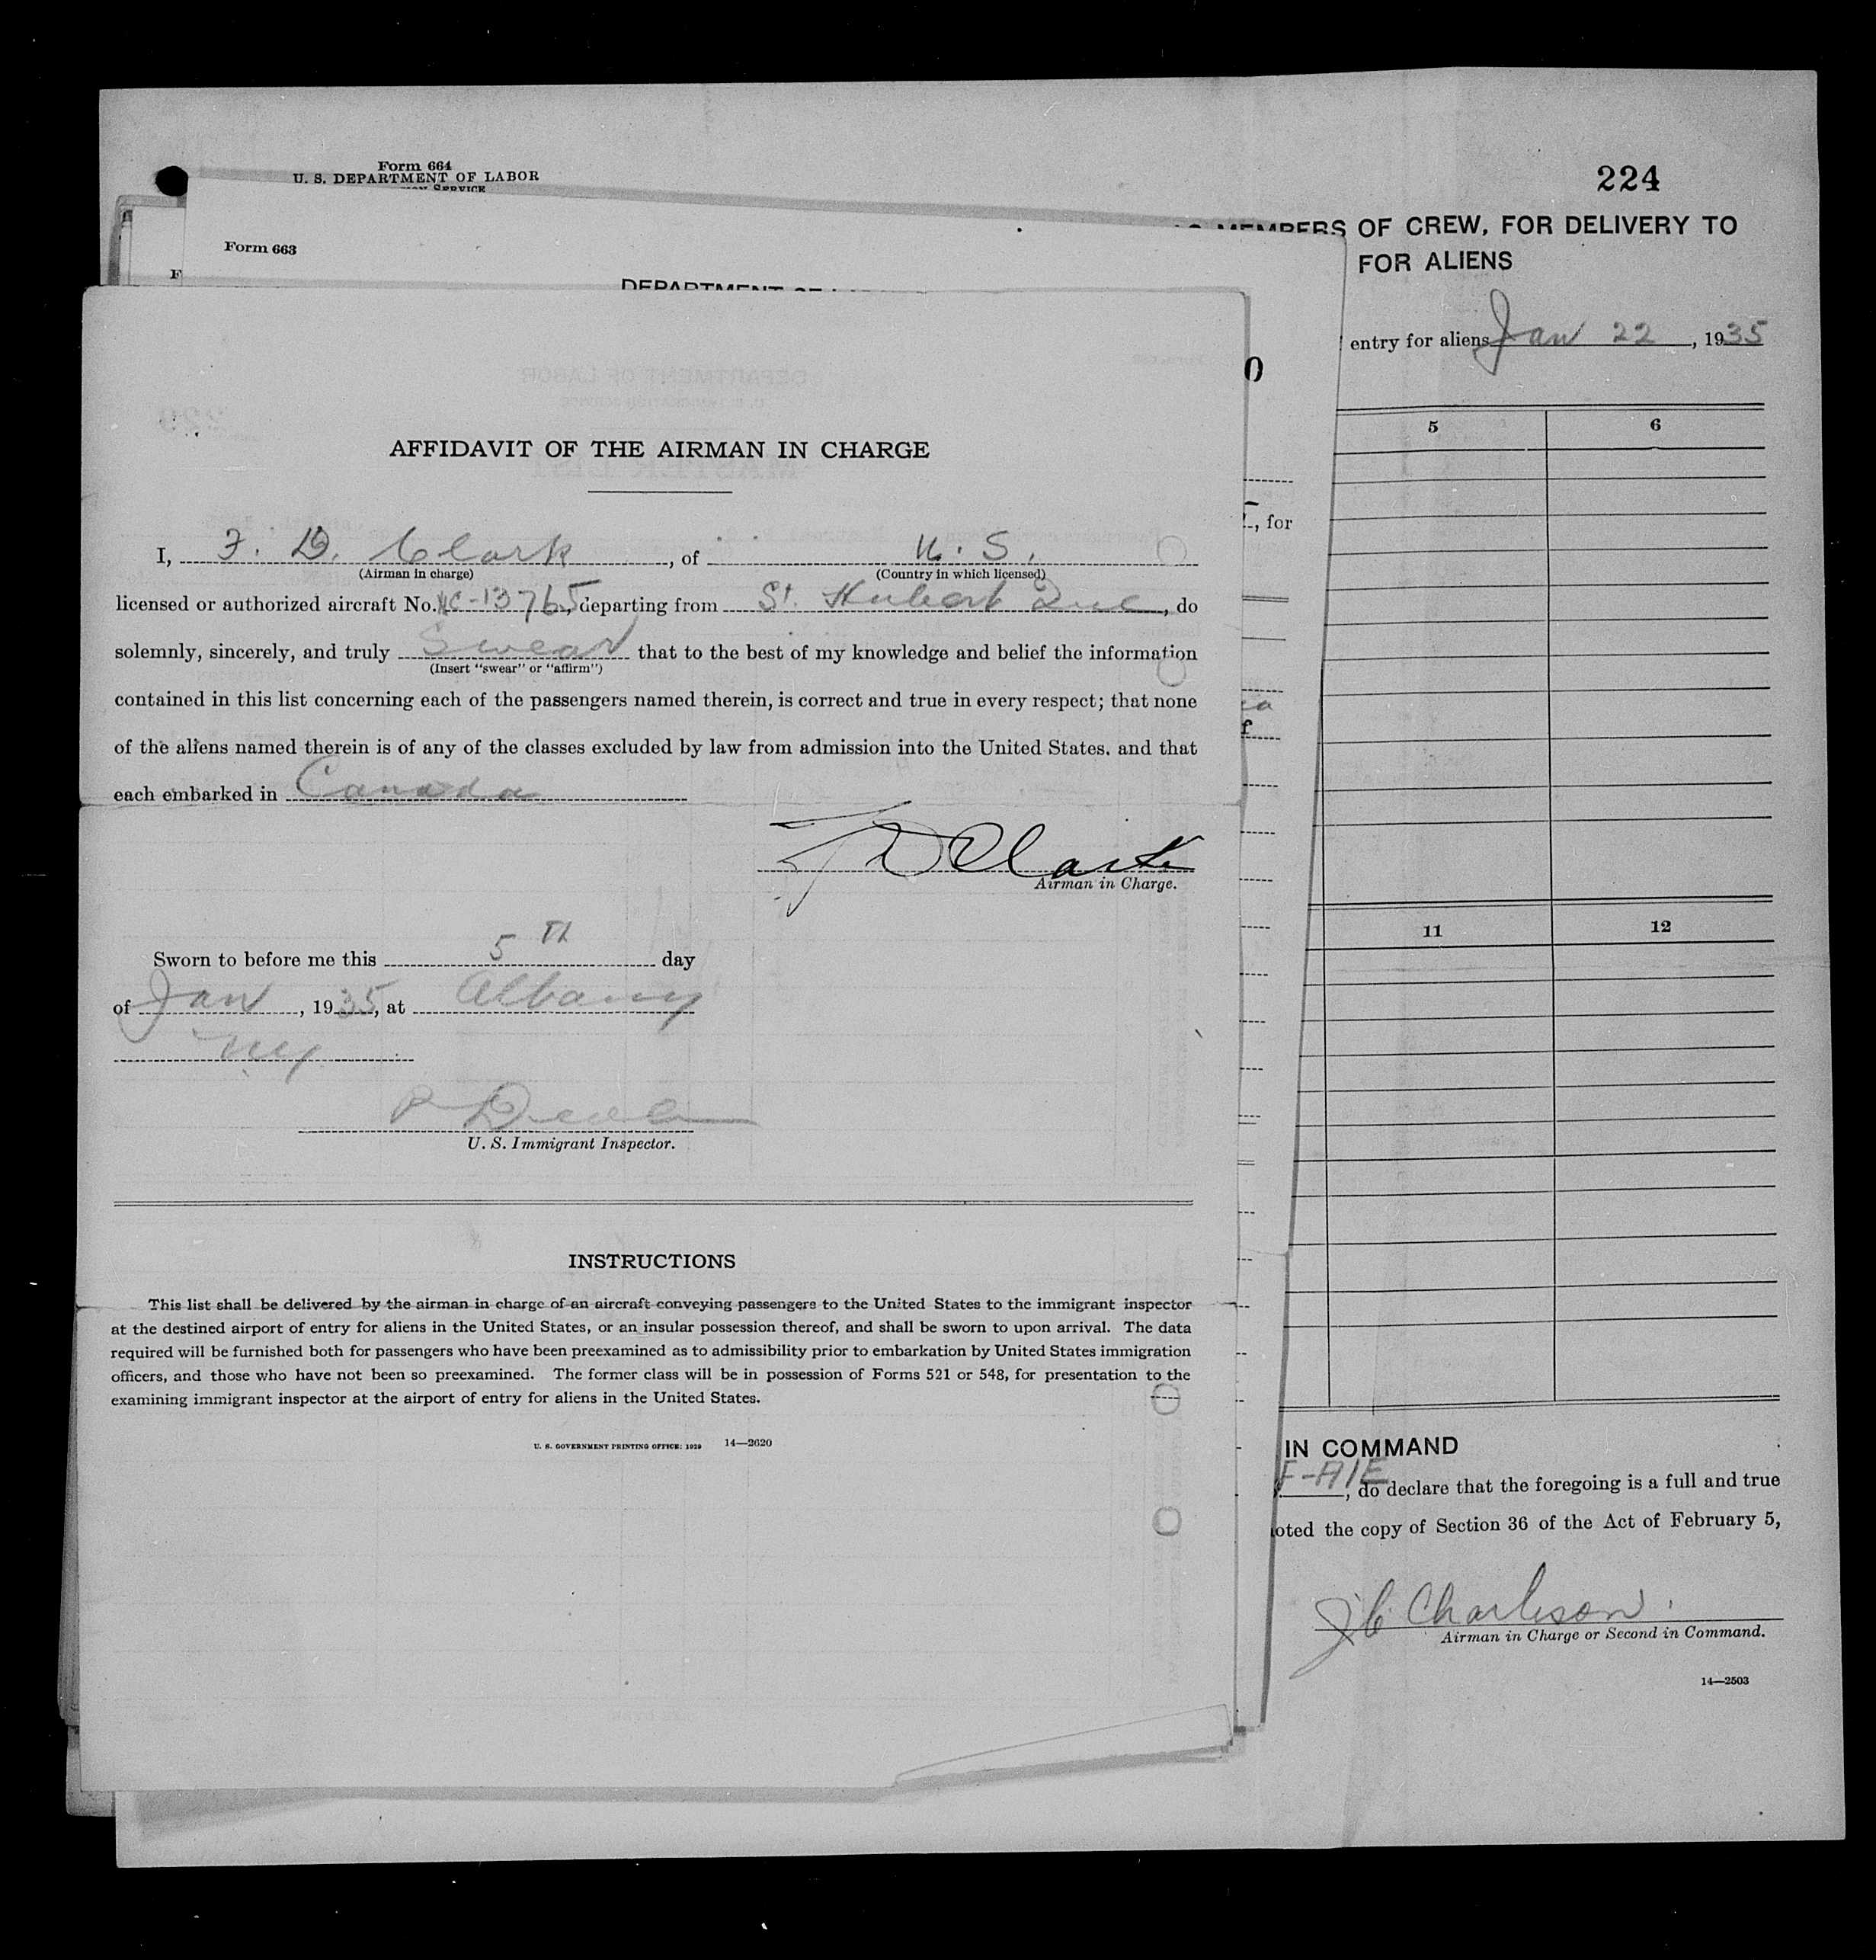 Form 664
U. S. DEPARTMENT OF LABOR
224
MEMBERS OF CREW, FOR DELIVERY TO
FOR ALIENS
entry for aliens Jan 22, 1935
5 6
11 12
IN COMMAND
F-AIE, do declare that the foregoing is a full and true
oted the copy of Section 36 of the Act of February 5,
J C Charleson.
Airman in Charge or Second in Command.
14—2503
Form 663
F
DEPARTMENT OF
0
, for
AFFIDAVIT OF THE AIRMAN IN CHARGE
I, F. D. Clark, of U. S.
(Airman in charge) (Country in which licensed)
licensed or authorized aircraft No. NC-13765, departing from St. Hubert Que, do
solemnly, sincerely, and truly Swear that to the best of my knowledge and belief the information
(Insert "swear" or "affirm")
contained in this list concerning each of the passengers named therein, is correct and true in every respect; that none
of the aliens named therein is of any of the classes excluded by law from admission into the United States. and that
each embarked in Canada
F D Clark
Airman in Charge.
Sworn to before me this 5 TH day
of Jan, 1935, at Albany
NY
U. S. Immigrant Inspector.
INSTRUCTIONS
This list shall be delivered by the airman in charge of an aircraft conveying passengers to the United States to the immigrant inspector
at the destined airport of entry for aliens in the United States, or an insular possession thereof, and shall be sworn to upon arrival. The data
required will be furnished both for passengers who have been preexamined as to admissibility prior to embarkation by United States immigration
officers, and those who have not been so preexamined. The former class will be in possession of Forms 521 or 548, for presentation to the
examining immigrant inspector at the airport of entry for aliens in the United States.
U. S. GOVERNMENT PRINTING OFFICE: 1929 14—2620